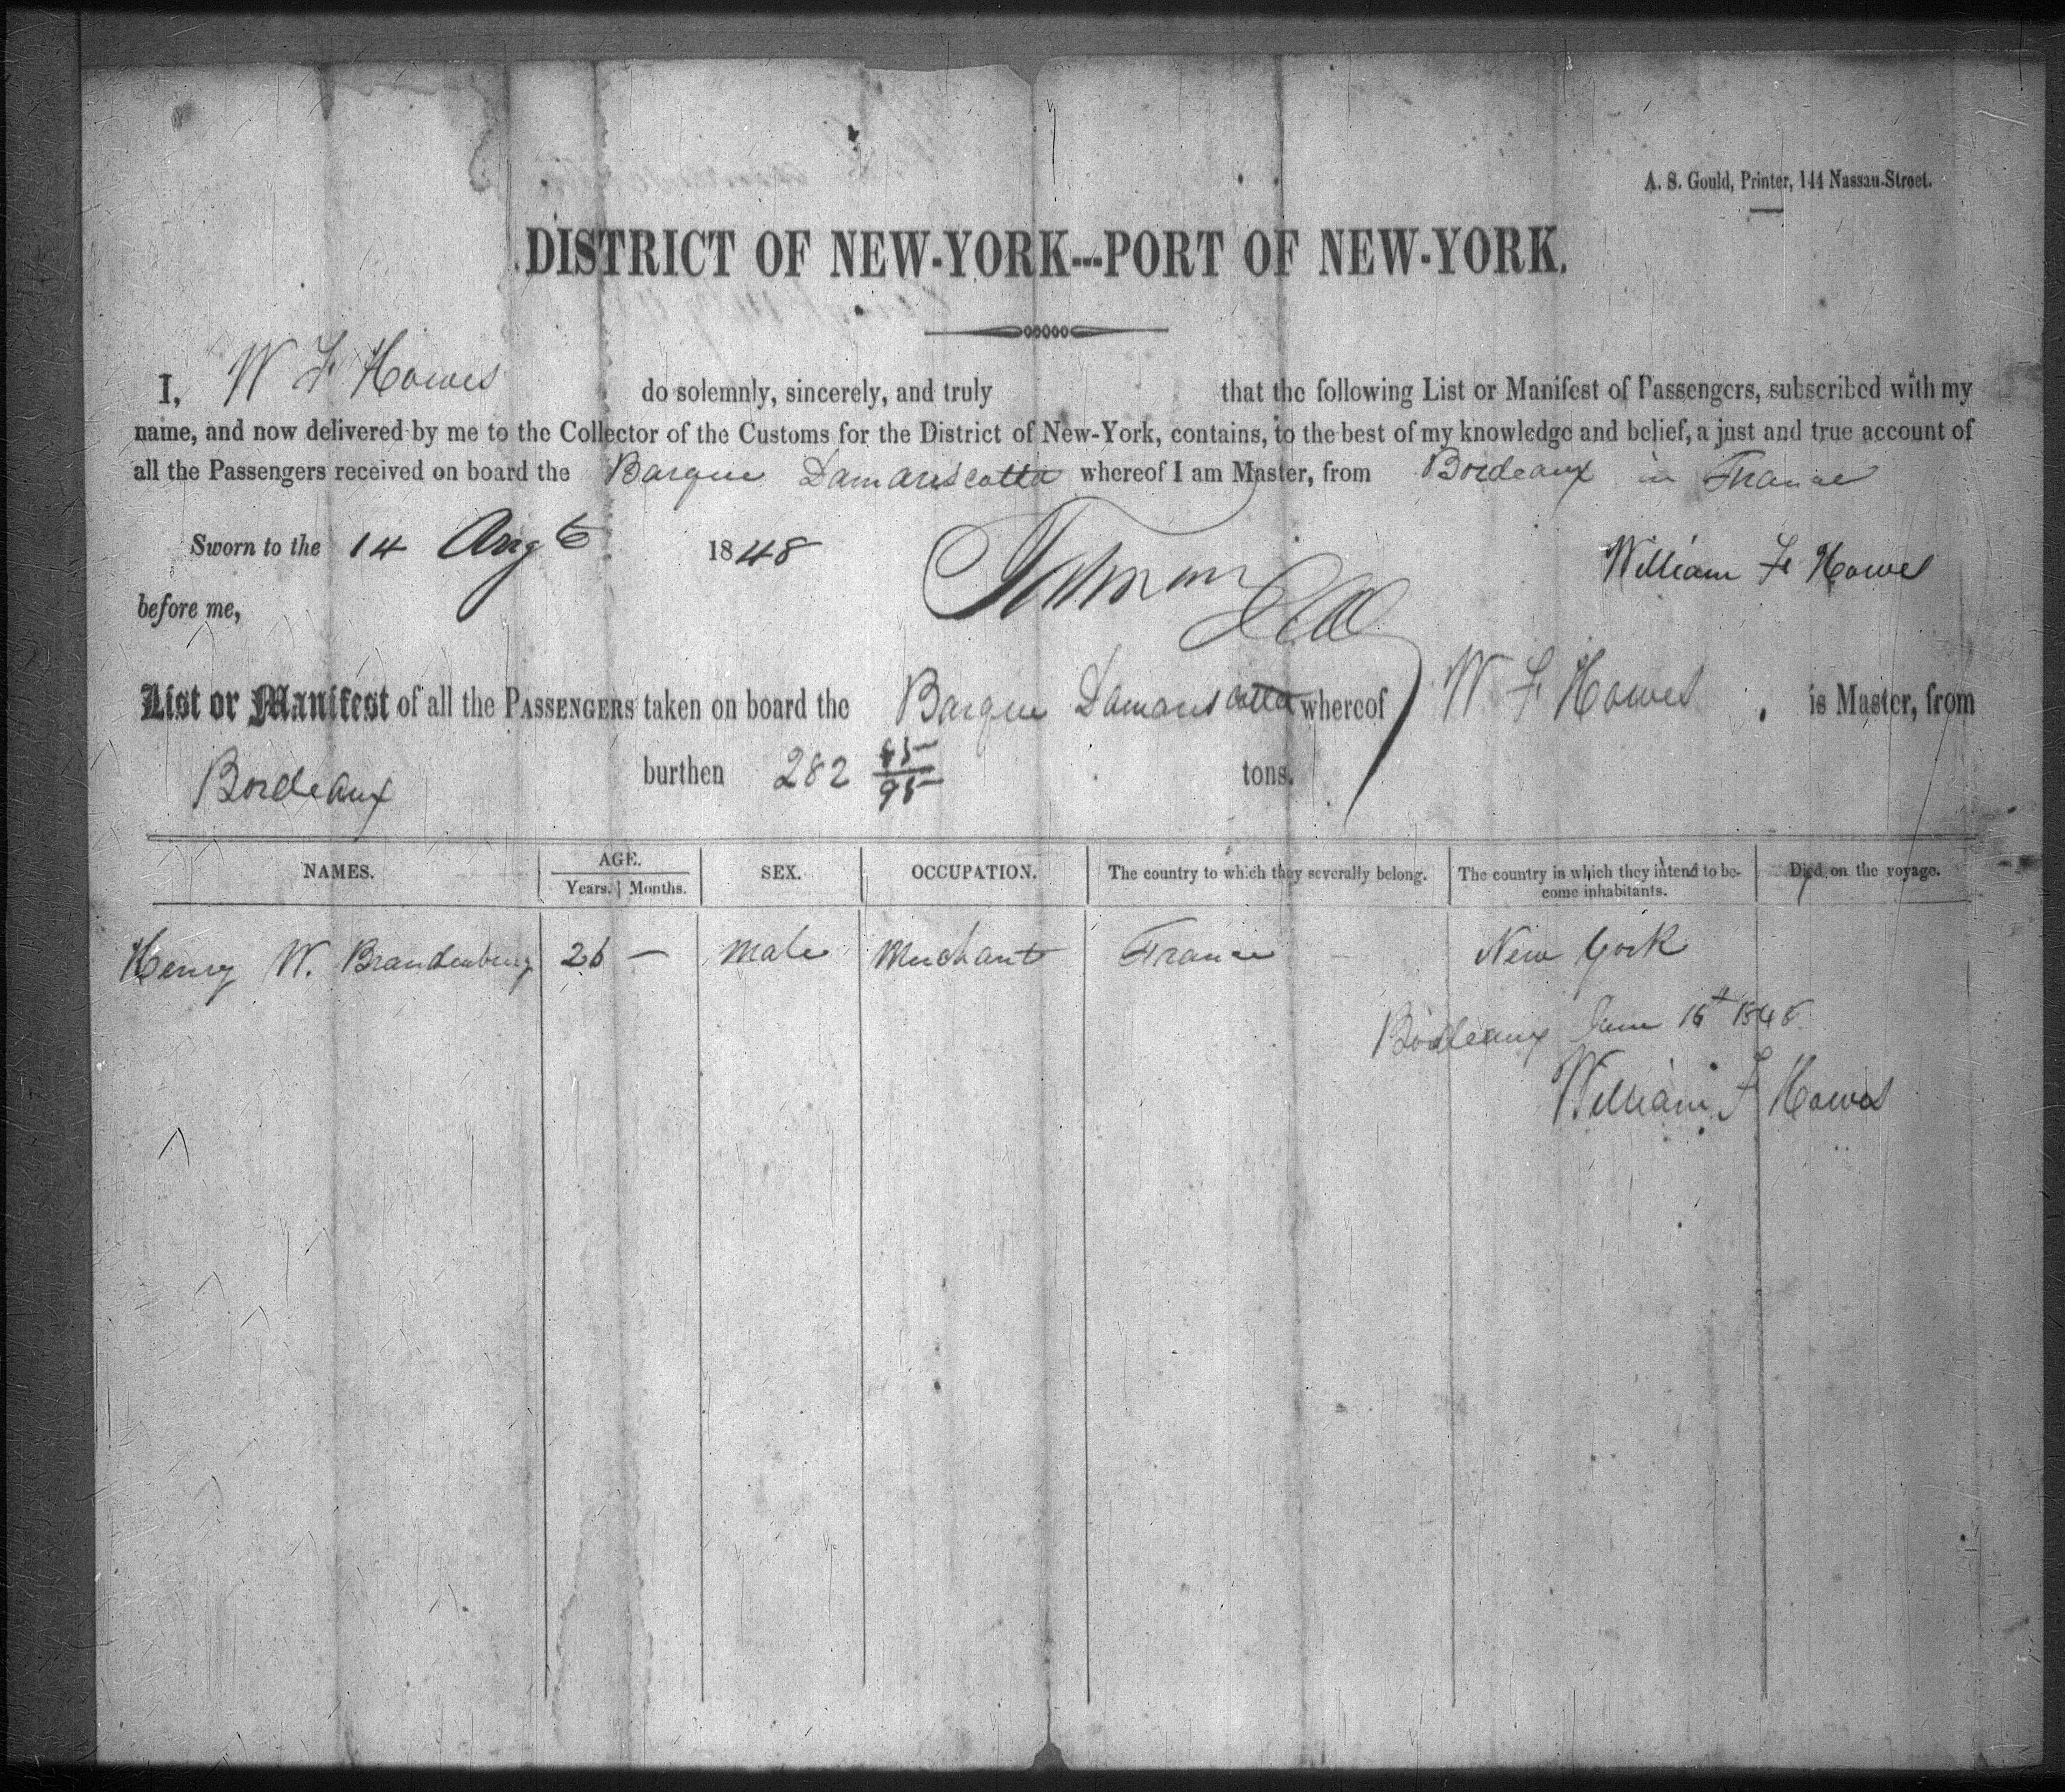 A. S. Gould, Printer, 144 Nassau-Street.
DISTRICT OF NEW-YORK---PORT OF NEW-YORK.
I, W F Howes do solemnly, sincerely, and truly that the following List or Manifest of Passengers, subscribed with my
name, and now delivered by me to the Collector of the Customs for the District of New-York, contains, to the best of my knowledge and belief, a just and true account of
all the Passengers received on board the Barque Damariscotta whereof I am Master, from Bordeaux in France
Sworn to the 14 Augt 1848 William F Howes
before me,
List or Manifest of all the PASSENGERS taken on board the Barque Damariscotta whereof W F Howes, is Master, from
Bordeaux burthen 282 45/95 tons.
NAMES. AGE. SEX. OCCUPATION. The country to which they severally belong. The country in which they intend to be- Died on the voyage.
Years. Months. come inhabitants.
Henry W. Brandenburg 26 — Male Merchant France New York
Bordeaux June 16th 1848
William F Howes